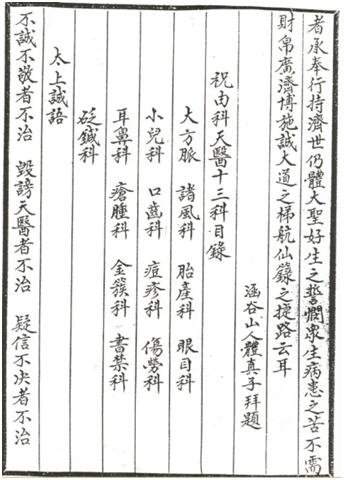 者承奉行持濟世仍體大聖好生之誓憫眾生病患之苦不需
財帛廣濟博施誠大道之梯航仙籙之捷路云耳
涵谷山人體真子拜題
祝由科天醫十三科目錄
大方脈　諸風科　胎產科　眼目科
小兒科　口齒科　痘疹科　傷勞科
耳鼻科　瘡腫科　金簇科　書禁科
砭鍼科
太上誠語
不誠不敬者不治　毀謗天醫者不治　疑信不決者不治